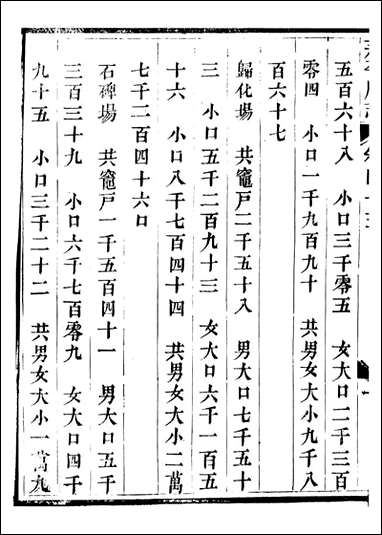 五百六十八 小口三千零五 女大口二千三百
零四 小口一千九百九十 共男女大小九千八
百六十七
歸化場 共竈戸二千五十八 男大口七千五十
三 小口五千二百九十三 女大口六千一百五
十六 小口八千七百四十四 共男女大小二萬
七千二百四十六口
石碑場 共竈戸一千五百四十一 男大口五千
三百三十九 小口六千七百零九 女大口四千
九十五 小口三千二十二 共男女大小一萬九